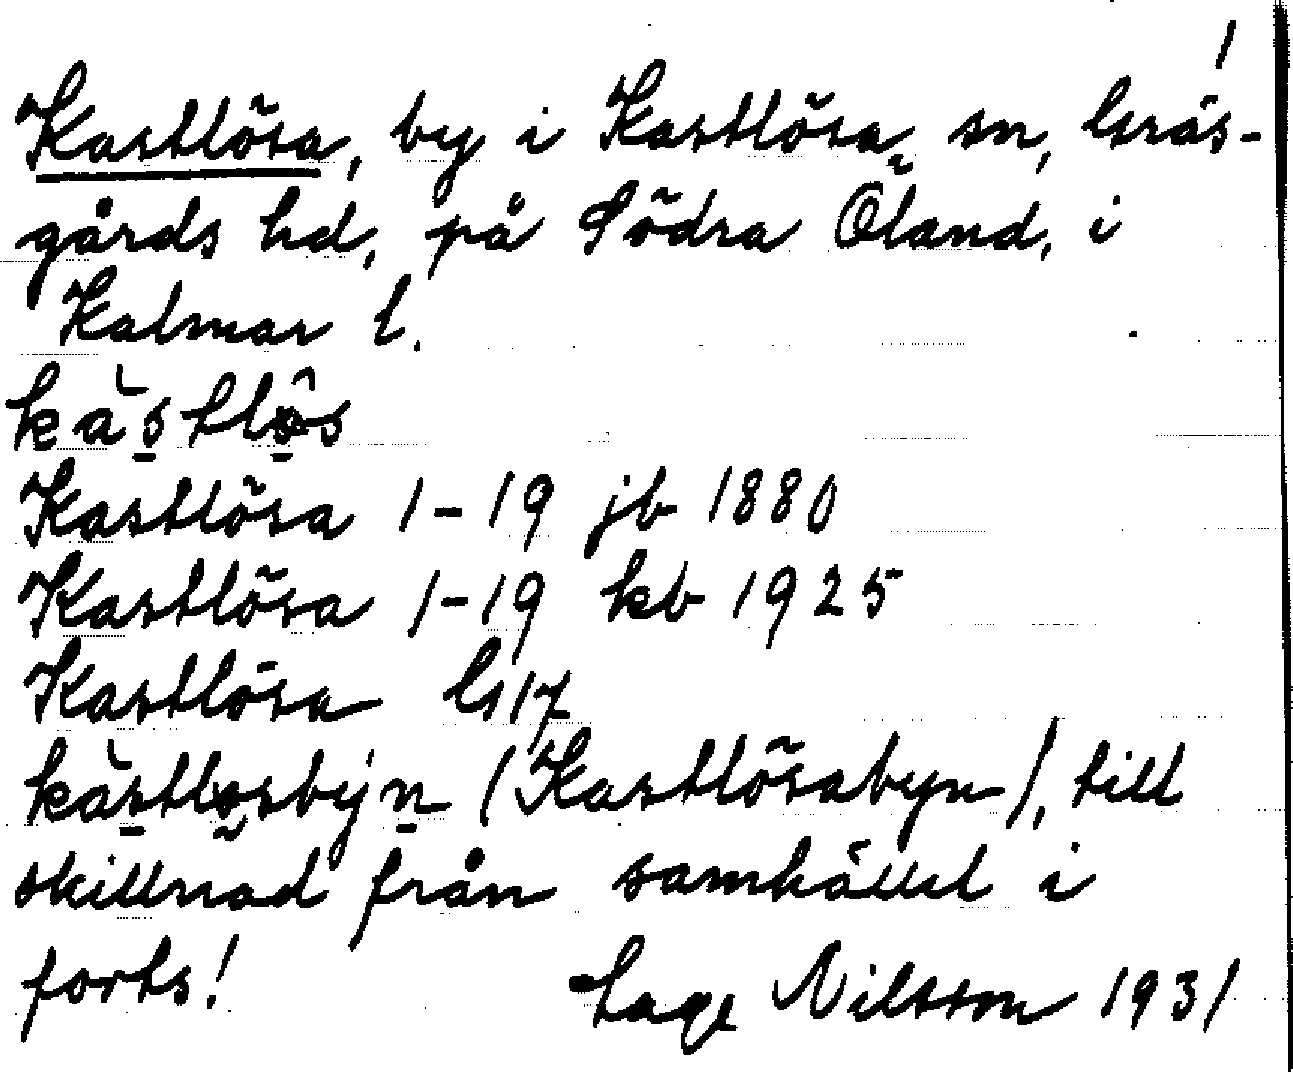 1
Kastlösa, by i Kastlösa sn, Gräs-
gårds hd, på Södra Öland, i
Kalmar l.
Kastlösa 1-19 jb 1880
Kastlösa 1-19 kb 1925
Kastlösa
(Kastlösabyn), till
skillnad från samhället i
forts! Lage Nilsson 1931